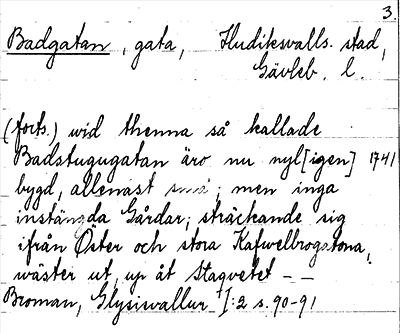 3.
Badgatan, gata, Hudiksvalls stad,
Gävleb. l.
(forts.) wid thenna så kallade
Badstugugatan äro nu nyl[igen] 1741
bygd, allenast små; men inga
instängda Gårdar; sträckande sig
ifrån Öster och stora Kafwelbrogatona,
wäster ut, up åt Stagvetet – –
Broman, Glysiswallur I:2 s. 90-91